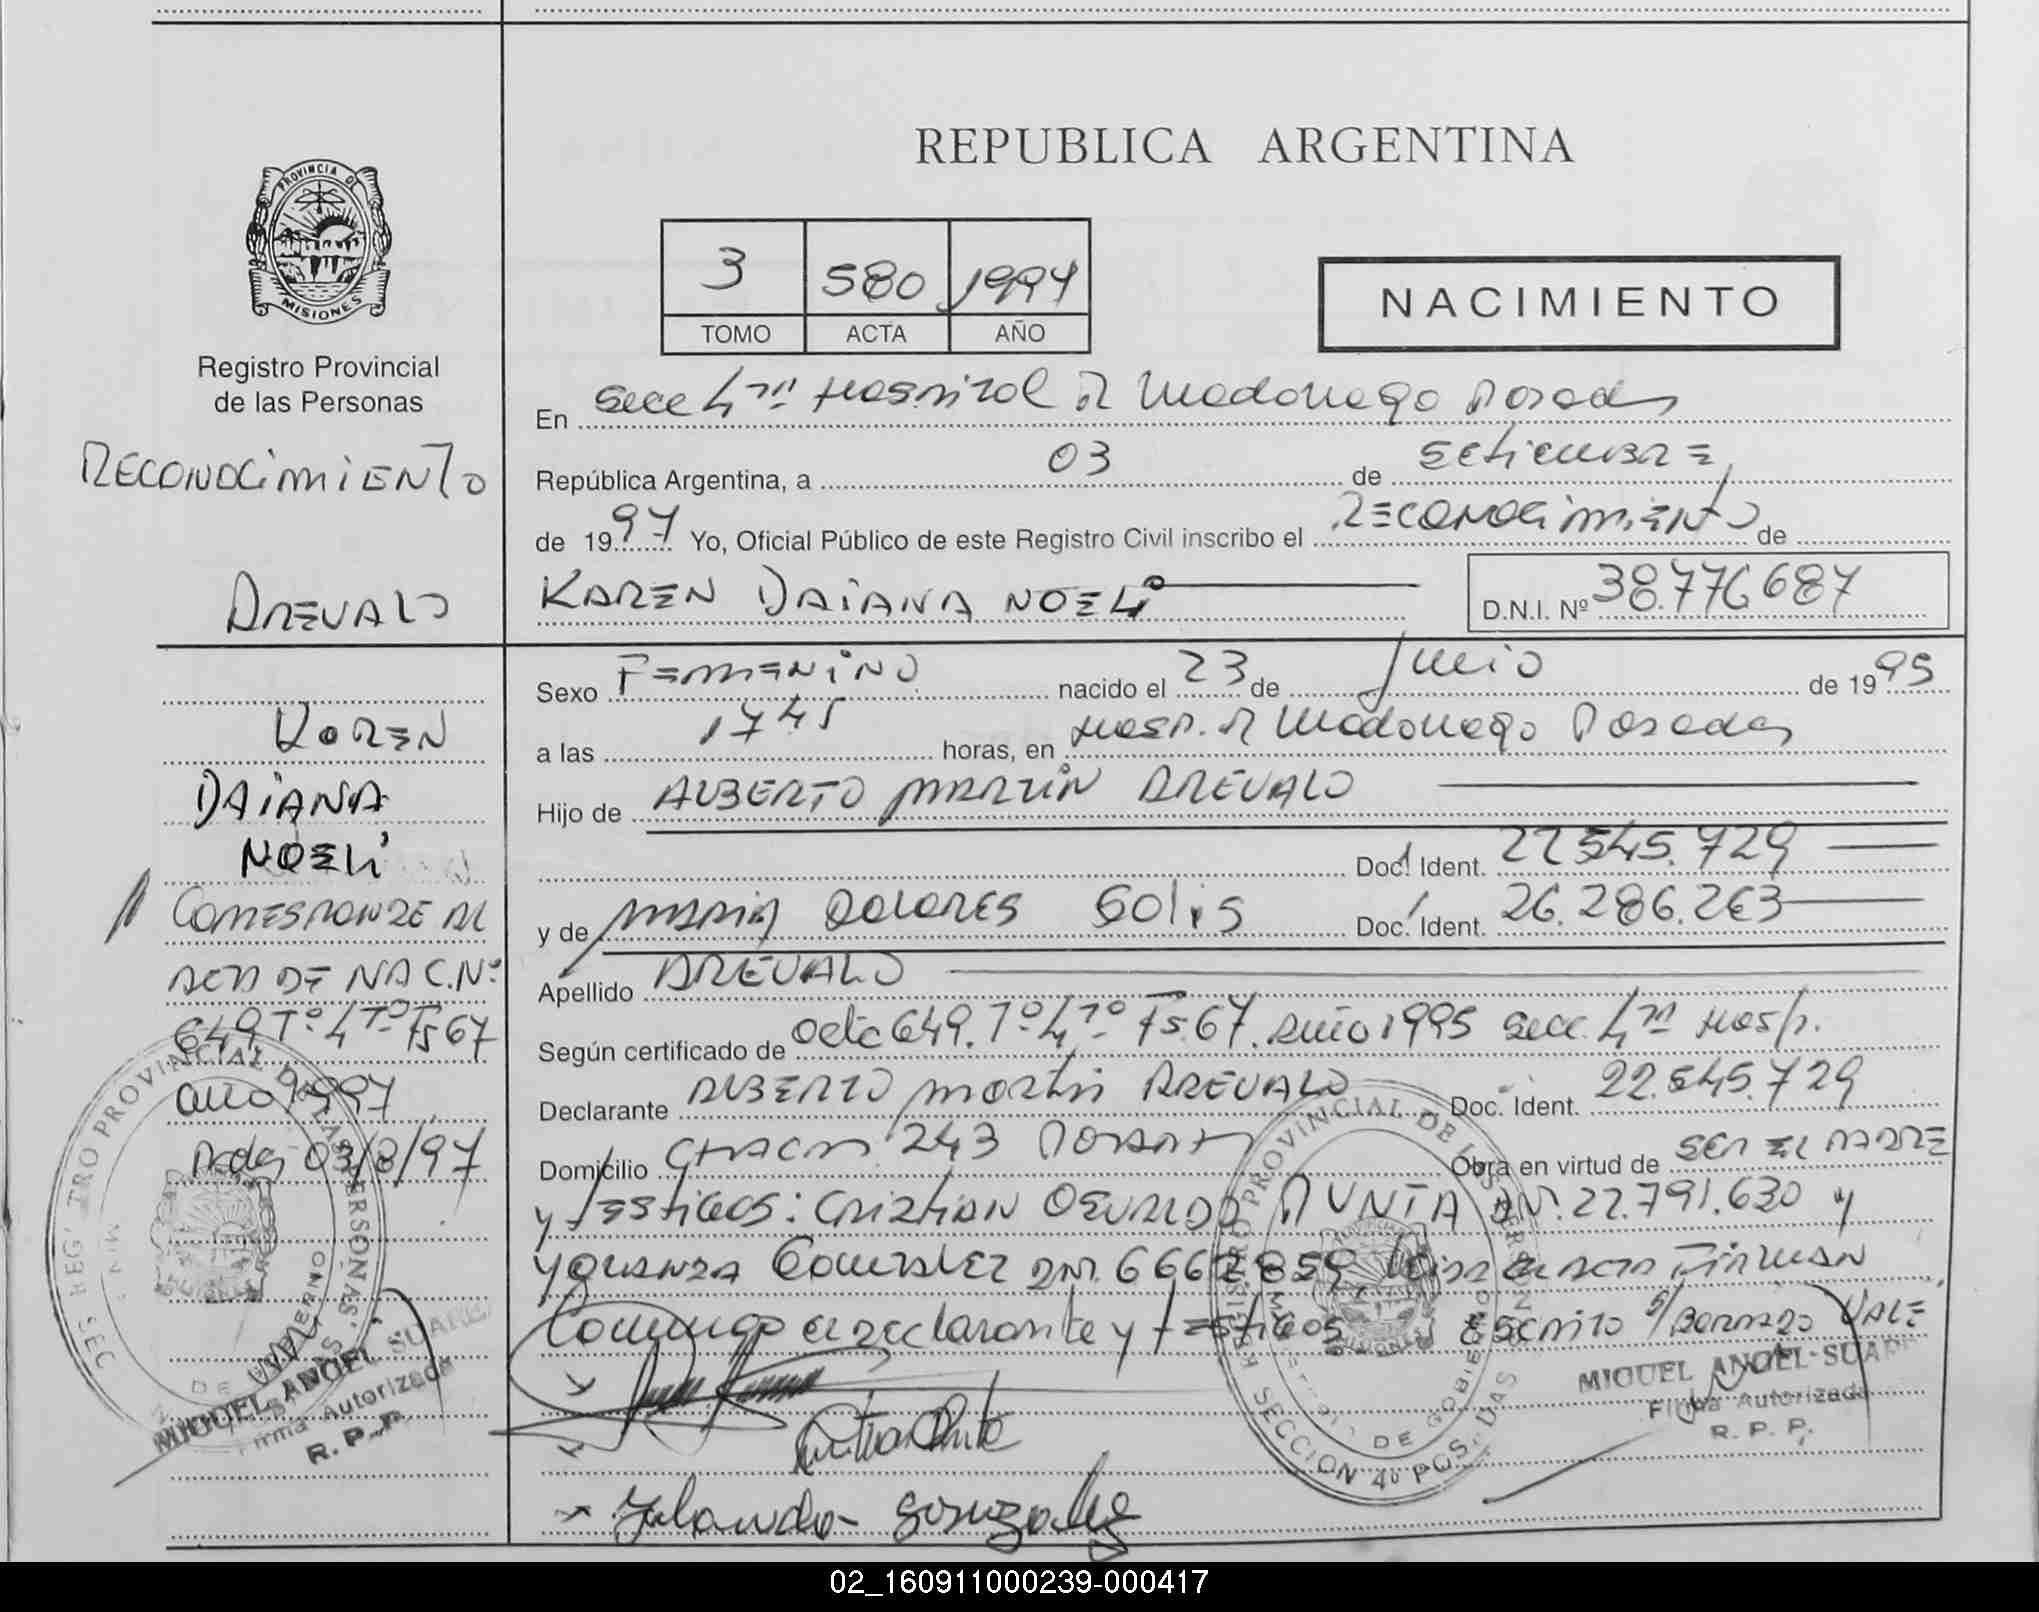 REPUBLICA ARGENTINA
PROVINCIA DE
MISIONES
Registro Provincial
de las Personas
3 580 1997
TOMO ACTA AÑO
NACIMIENTO
RECONOCIMIENTO
AREVALO
KAREN
DAIANA
NOELI
CORRESPONDE AL
ACTA DE NAC. Nº
649. Tº 4to Fs 67
año 1997
Pdas 03/8/97
En Secc 4ta Hospital R Madariaga Posadas
República Argentina, a 03 de Setiembre
de 1997 Yo, Oficial Público de este Registro Civil inscribo el Reconocimiento de
KAREN DAIANA NOELI D.N.I. Nº 38.776.687
Sexo Femenino nacido el 23 de Junio de 1995
a las 1745 horas, en Hosp. R Madariaga Posadas
Hijo de ALBERTO MARTIN AREVALO
Doc. Ident. 22.545.729
y de MARIA DOLORES SOLIS Doc. Ident. 26.286.263
Apellido AREVALO
Según certificado de acta 649. Tº 4to Fs 67. Año 1995 Secc. 4ta Hosp.
Declarante ALBERTO MARTIN AREVALO Doc. Ident. 22.545.729
Domicilio CHACO 243 POSADAS Obra en virtud de SER EL PADRE
y testigos: CRISTIAN OSVALDO DNI. 22.791.630 y
GONZALEZ DNI. 6662.859 FIRMAN
Conmigo el declarante y testigos Escrito s/ Borrado VALE
Yolanda Gonzalez
REGISTRO PROVINCIAL DE LAS PERSONAS
MINISTERIO DE GOBIERNO
SECCION 4º POSADAS
MIGUEL ANGEL SUAREZ
Firma Autorizada
R. P. P.
REGISTRO PROVINCIAL DE LAS PERSONAS
MIGUEL ANGEL SUAREZ
Firma Autorizada
R. P. P.
02_160911000239-000417